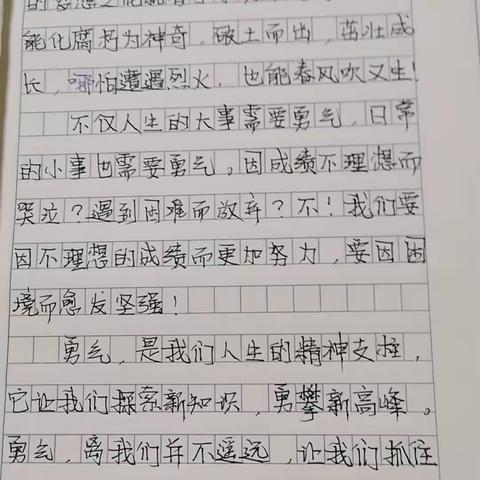 能化腐朽为神奇，破土而出，茁壮成
长，哪怕遭遇烈火，也能春风吹又生！
不仅人生的大事需要勇气，日常
的小事也需要勇气。因成绩不理想而
哭泣？遇到困难而放弃？不！我们要
因不理想的成绩而更加努力，要因困
境而愈发坚强！
勇气，是我们人生的精神支柱，
它让我们探索新知识，勇攀新高峰。
勇气，离我们并不遥远，让我们抓住